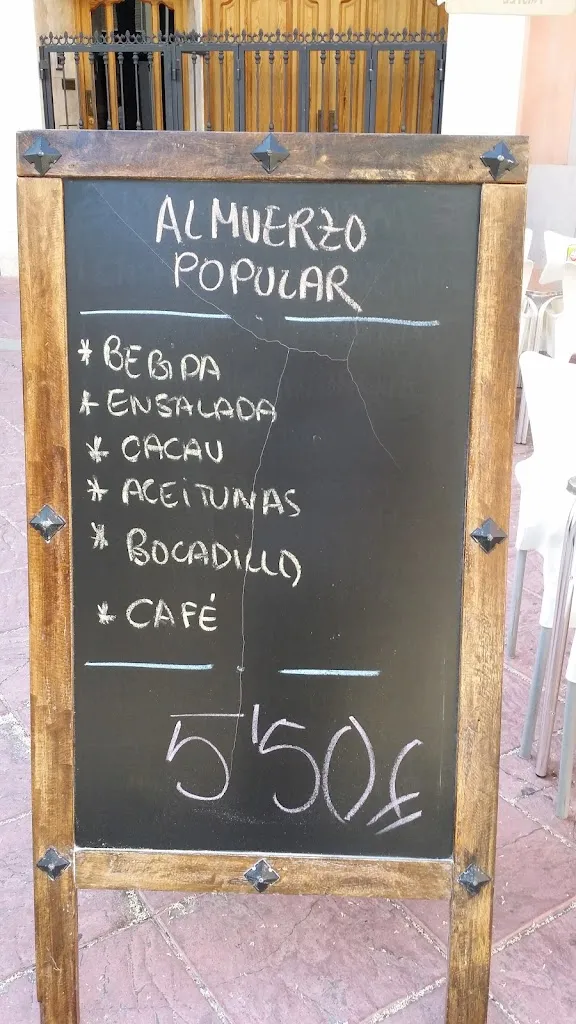 ALMUERZO
POPULAR
* BEBIDA
* ENSALADA
* CACAU
* ACEITUNAS
* BOCADILLO
* CAFÉ
5'50€